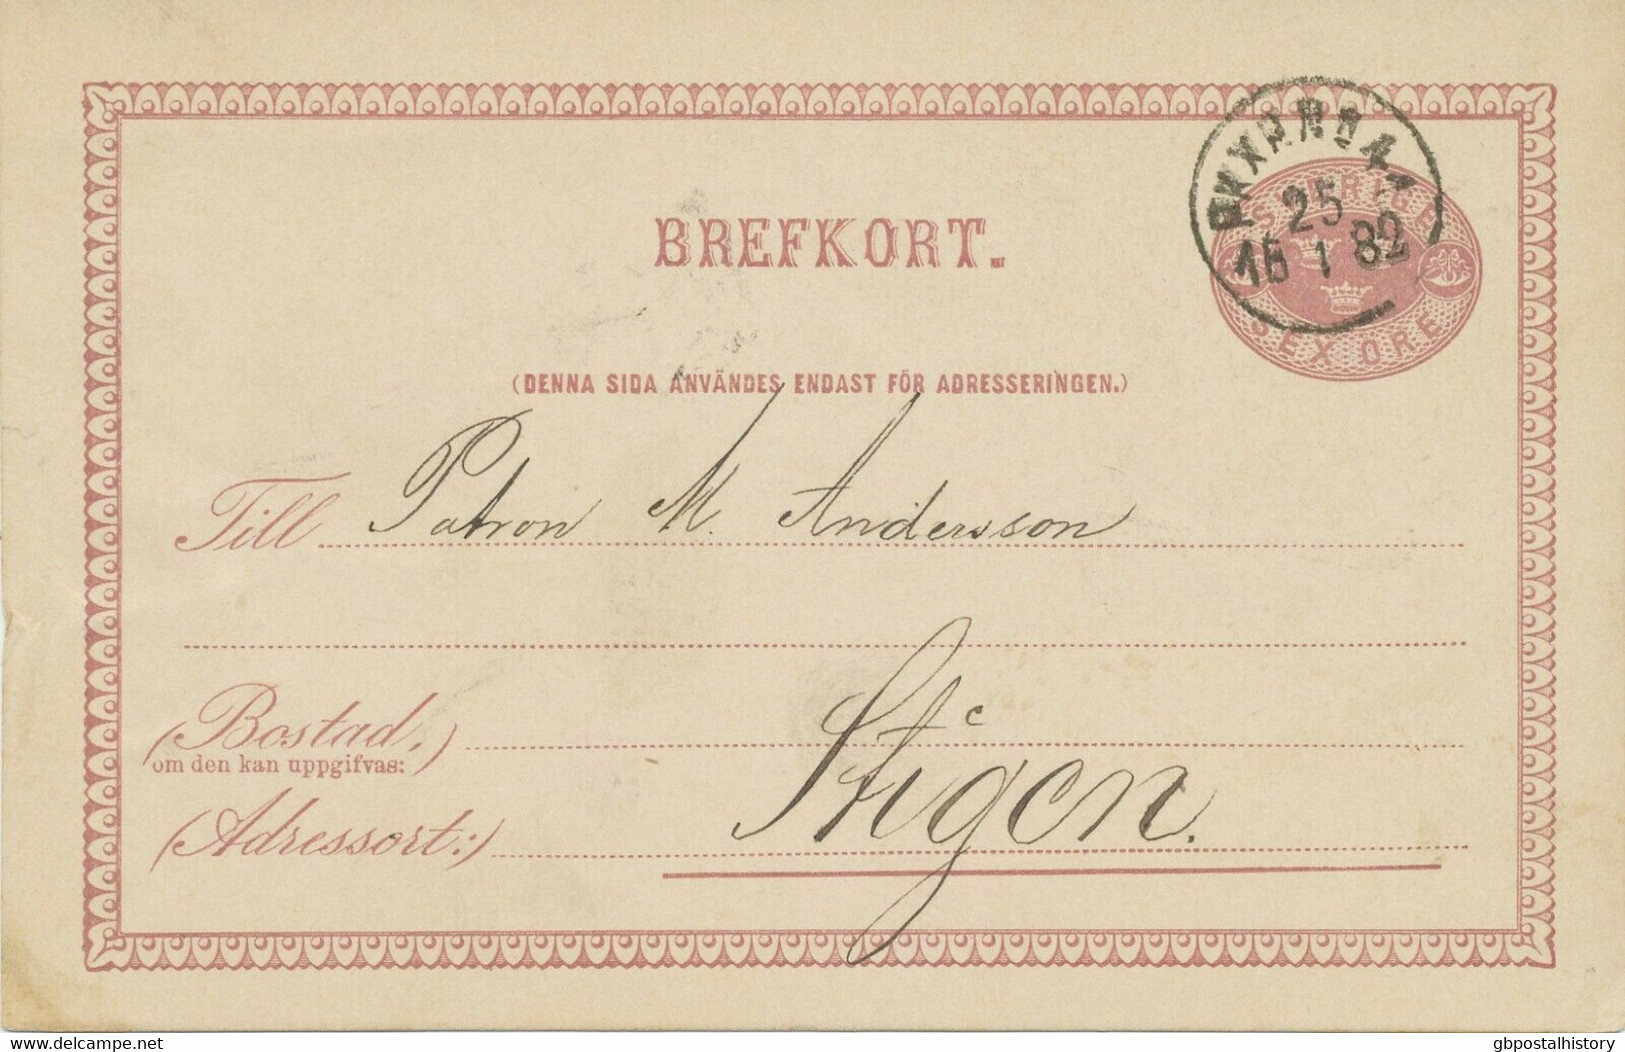 BREFKORT.
25
1 82
SVERIGE
SEX ÖRE
(DENNA SIDA ANVÄNDES ENDAST FÖR ADRESSERINGEN.)
Till Patron M. Andersson
(Bostad.)
om den kan uppgifvas:
(Adressort:) Stigen.
www.delcampe.net
gbpostalhistory